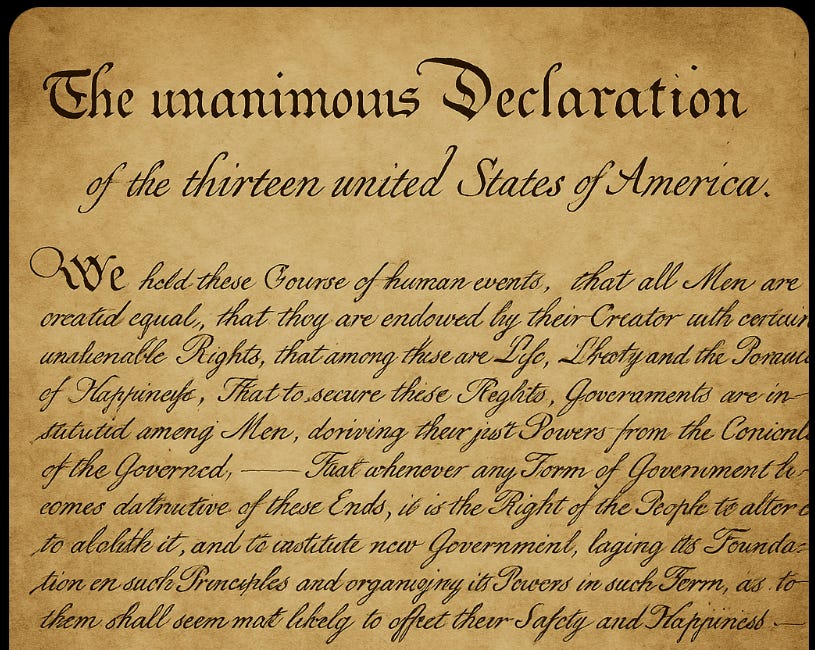 The unanimouis Declaration
of the thirteen united States of America.
We hold these Course of human events, that all Men are
creatid equal,, that thoy are endowed by their Creator with certain
unalienable Rights, that among these are Life, and the
of Happineſs, That to secure these Reghts, Goveraments are in-
stitutid ameng Men, doriving their just Powers from the
of the Governcd, —— That whenever any Form of Government be-
comes datructive of these Ends, it is the Right of the People to alter
to it, and to institute new Government, laging its Founda-
tion en such Principles and its Powers in such Form, as to
them shall seem likelg to offect their Safcty and Happiness —